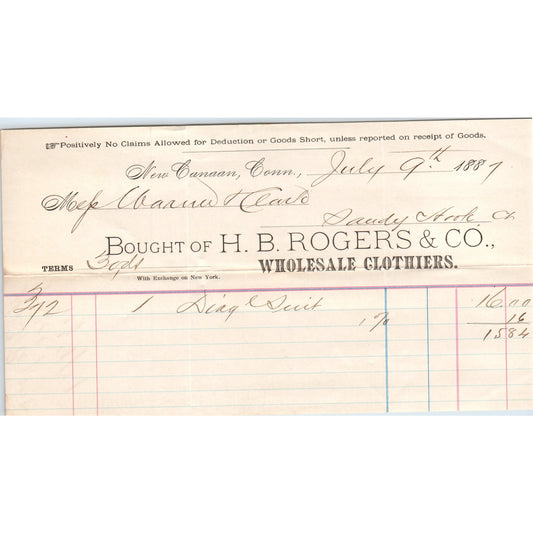 ☞Positively No Claims Allowed for Deduction or Goods Short, unless reported on receipt of Goods.
New Canaan, Conn., July 9th 1887
Mess Warner & Clark
Sandy Hook Ct
BOUGHT OF H. B. ROGERS & CO.,
TERMS 30 ds WHOLESALE CLOTHIERS.
With Exchange on New York.
372 1 Diagl Suit 16.00
1% 16
1584